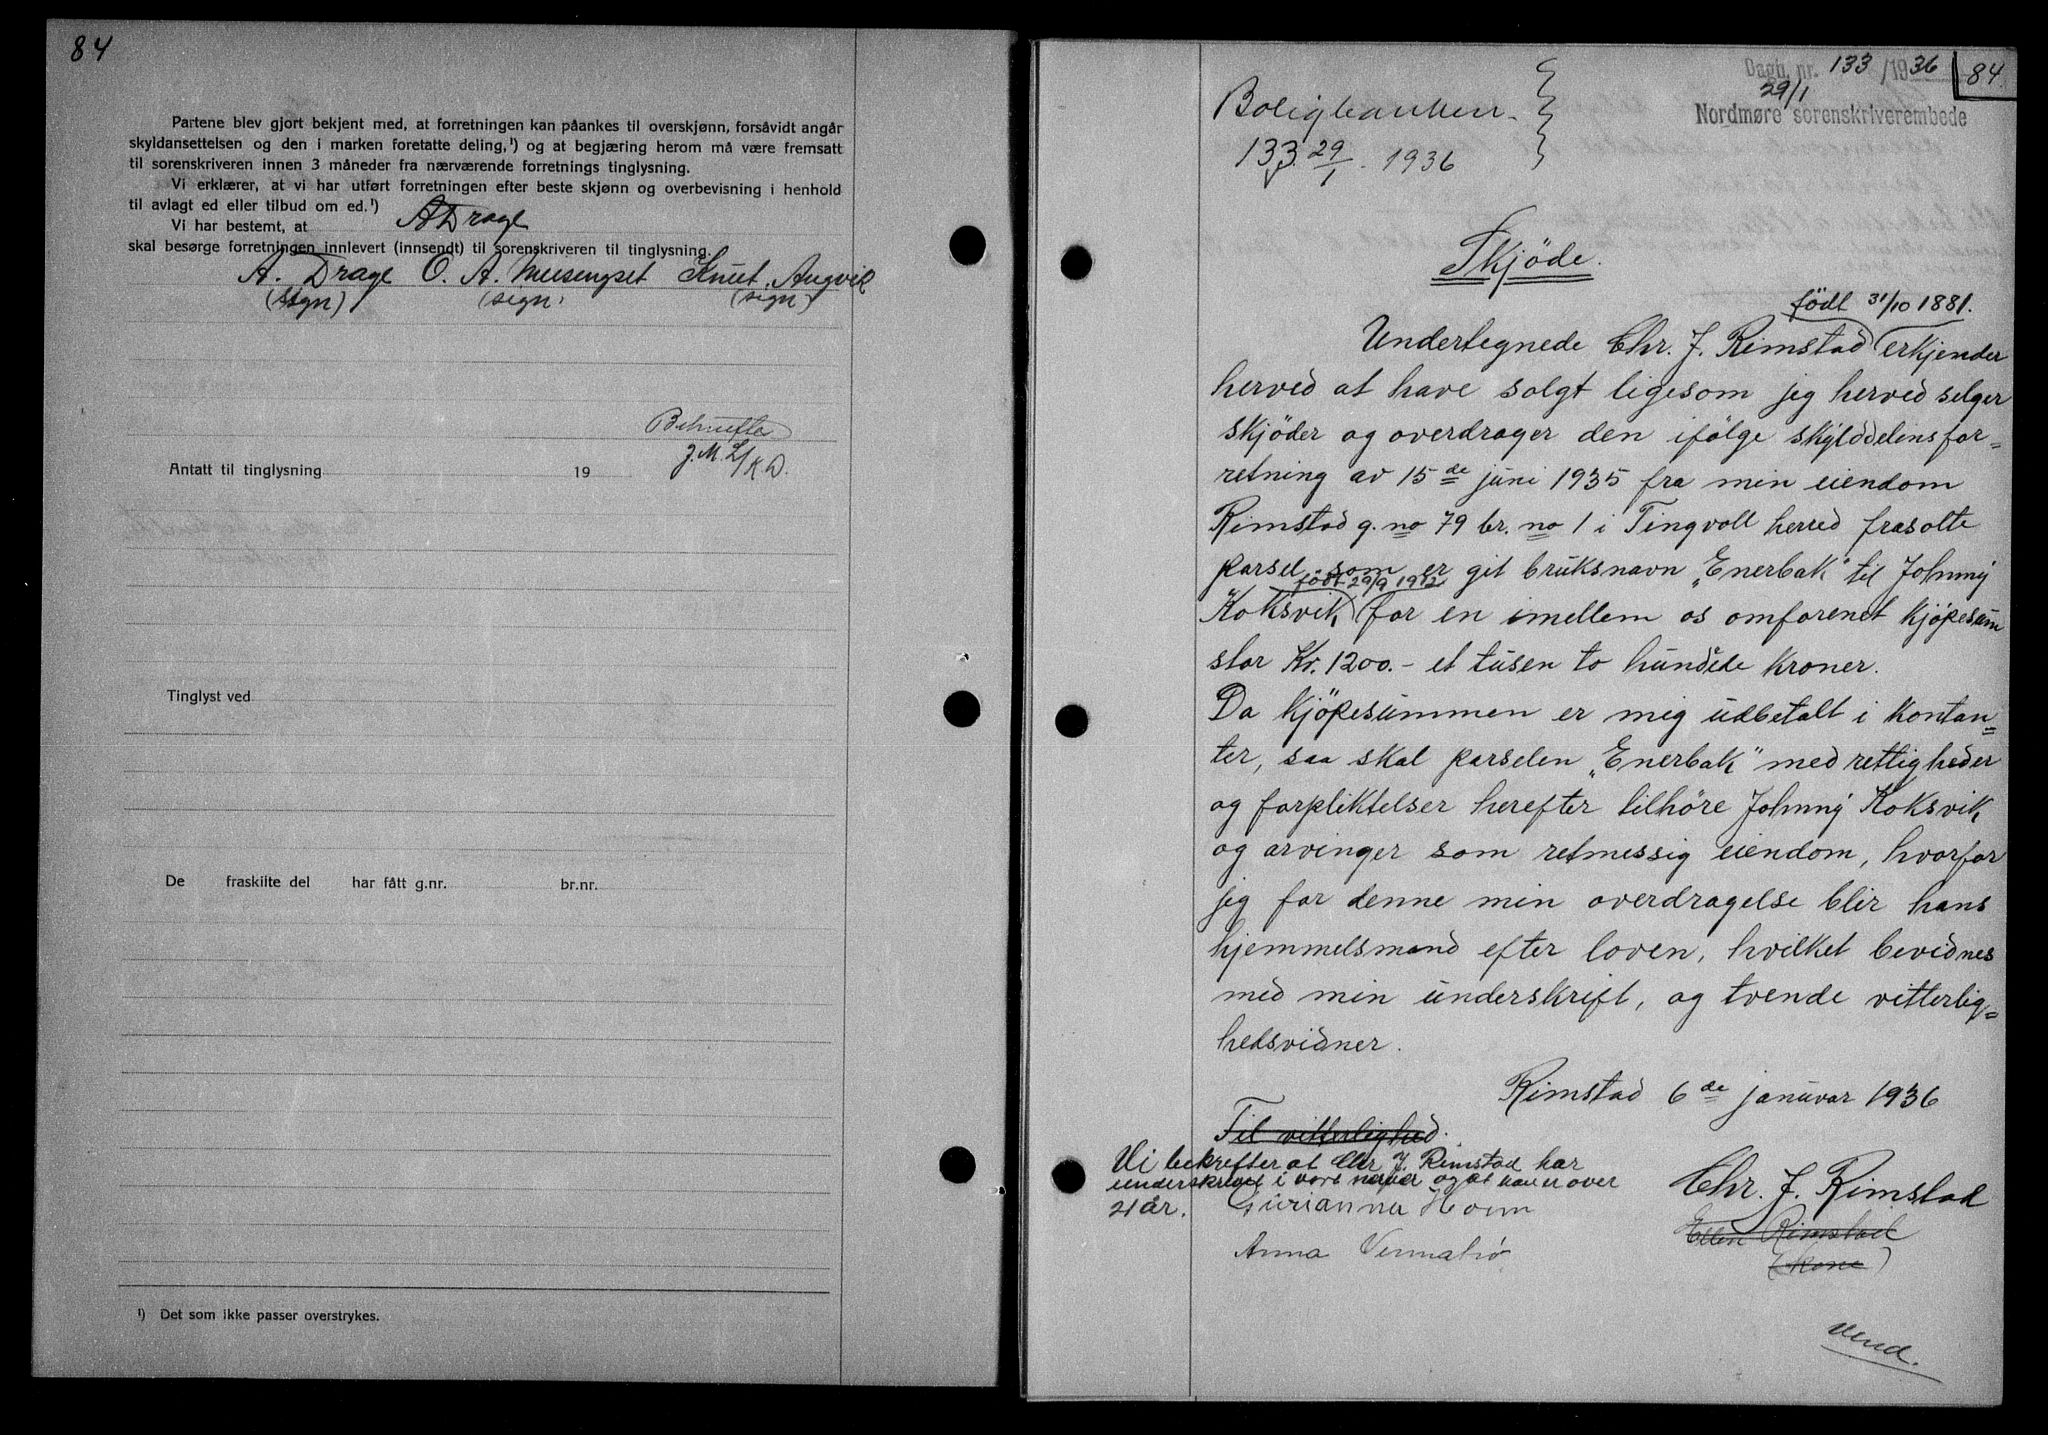 84
Partene blev gjort bekjent med, at forretningen kan påankes til overskjønn, forsåvidt angår
skyldansettelsen og den i marken foretatte deling,¹) og at begjæring herom må være fremsatt
til sorenskriveren innen 3 måneder fra nærværende forretnings tinglysning.
Vi erklærer, at vi har utført forretningen efter beste skjønn og overbevisning i henhold
til avlagt ed eller tilbud om ed.¹)
Vi har bestemt, at A Drage
skal besørge forretningen innlevert (innsendt) til sorenskriveren til tinglysning.
A. Drage O. A. Meisengset Knut Angvik
(sign) (sign) (sign)
Bekreftes
J.M.L/K.D.
Antatt til tinglysning 19
Tinglyst ved
De fraskilte del har fått g.nr. br.nr.
¹) Det som ikke passer overstrykes.
Dagb. nr. 133/1936 84
29/1
Nordmøre sorenskriverembede
Boligbanken
133 29/1 1936
Skjöde.
födt 31/10 1881.
Undertegnede Chr. J. Rimstad erkjender
herved at have solgt ligesom jeg herved selger
skjöder og overdrager den ifölge skylddelinsfor=
retning av 15de juni 1935 fra min eiendom
Rimstad g. no 79 br. no 1 i Tingvoll herred frasolte
parsel som er git bruksnavn „Enerbak" til Johnny
födt 29/9 1912
Koksvik, for en imellem os omforenet kjöpesum
stor Kr. 1200.- et tusen to hundede kroner.
Da kjöpesummen er mig udbetalt i kontan=
ter, saa skal parselen „Enerbak" med rettigheder
og forpliktelser herefter tilhöre Johnny Koksvik,
og arvinger som retmessig eiendom, hvorfor
jeg for denne min overdragelse blir hans
hjemmelsmand efter loven, hvilket bevidnes
med min underskrift, og tvende vitterlig=
hedsvidner.
Rimstad 6de januar 1936
Til vitterlighed.
Vi bekrefter at Chr J. Rimstad har
underskrevet i vort nærvær og at han er over
21 år. Gurianna Hoem
Chr. J. Rimstad
Ellen Rimstad
(kone)
Anna
Vend.